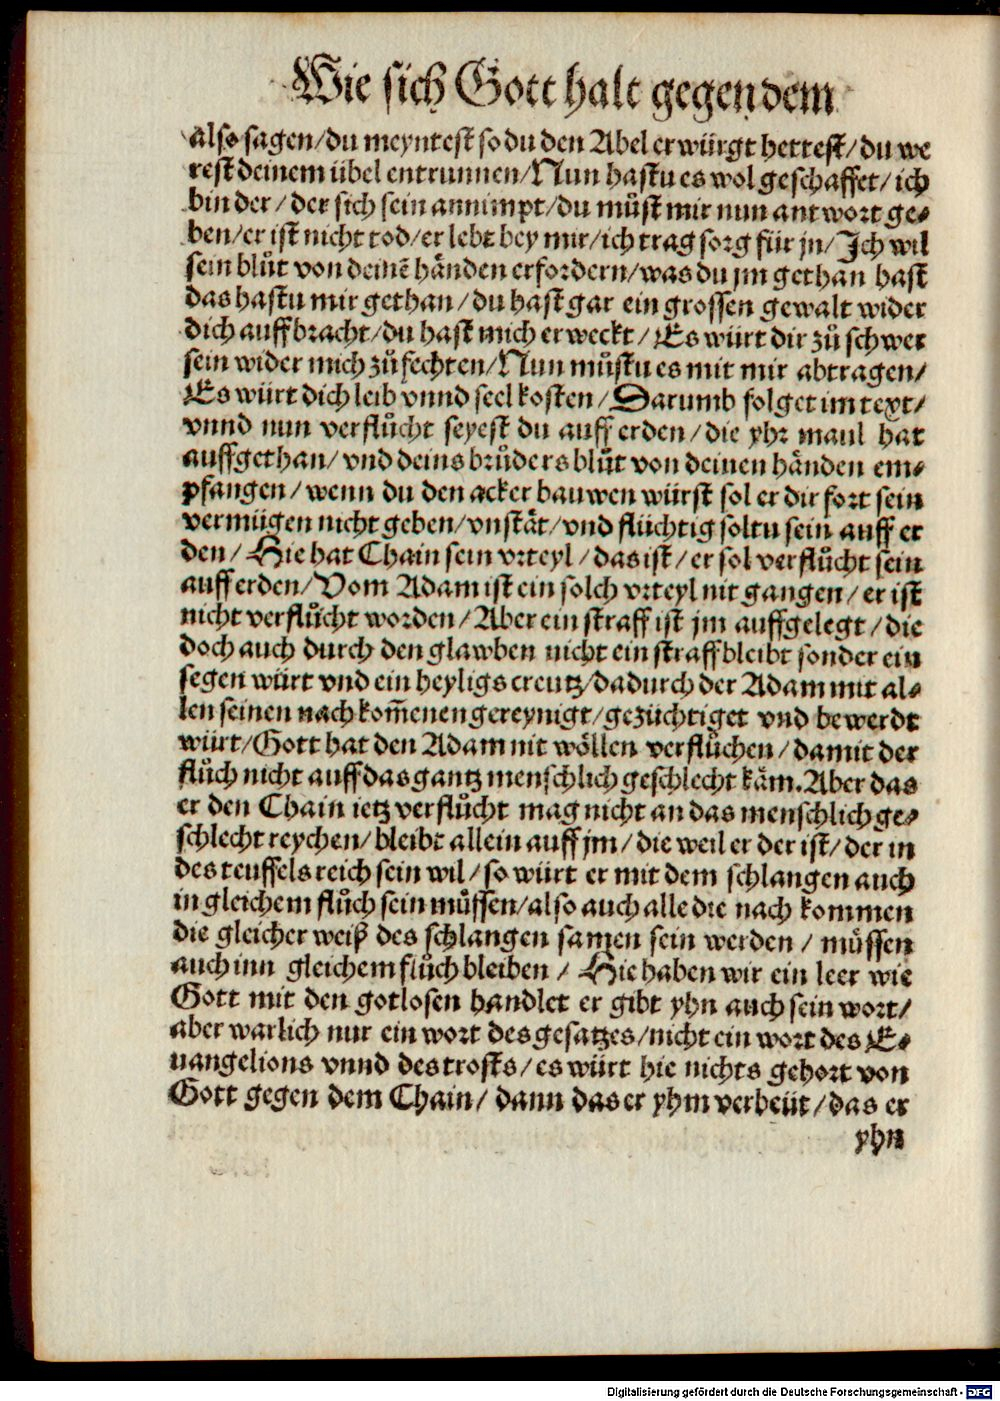 Wie sich Gott halt gegen dem
also sagen/du meyntest so du den Abel erwürgt hettest/du we
rest deinem übel entrunnen/Nun hastu es wol geschaffet/ich
bin der/der sich sein annimpt/du můst mir nun antwort ge⸗
ben/er ist nicht tod/er lebt bey mir/ich trag sorg für jn/Ich wil
sein blůt von deinē händen erfordern/was du jm gethan hast
das hastu mir gethan/du hast gar ein grossen gewalt wider
dich auffbracht/du hast mich erweckt/Es würt dir zů schwer
sein wider mich zů fechten/Nun můstu es mit mir abtragen/
Es würt dich leib vnnd seel kosten/Darumb folget im text/
vnnd nun verflůcht seyest du auff erden/die yhr maul hat
auffgethan/vnd deins brůders blůt von deinen händen em⸗
pfangen/wenn du den acker bauwen würst sol er dir fort sein
vermügen nicht geben/vnstät/vnd flüchtig soltu sein auff er
den/Hie hat Chain sein vrteyl/das ist/er sol verflůcht sein
auff erden/Vom Adam ist ein solch vrteyl nit gangen/er ist
nicht verflůcht worden/Aber ein straff ist jm auffgelegt/die
doch auch durch den glawben nicht ein straff bleibt sonder ein
segen würt vnd ein heyligs creutz/dadurch der Adam mit al⸗
len seinen nachkom̄enen gereynigt/gezüchtiget vnd bewerdt
würt/Gott hat den Adam nit wöllen verflůchen/damit der
flůch nicht auff das gantz menschlich geschlecht käm. Aber das
er den Chain ietz verflůcht mag nicht an das menschlich ge⸗
schlecht reychen/bleibt allein auff jm/die weil er der ist/der in
des teuffels reich sein wil/so würt er mit dem schlangen auch
in gleichem flůch sein müssen/also auch alle die nach kommen
die gleicher weiß des schlangen samen sein werden/müssen
auch inn gleichem flůch bleiben/Hie haben wir ein leer wie
Gott mit den gotlosen handlet er gibt yhn auch sein wort/
aber warlich nur ein wort des gesatzes/nicht ein wort des E⸗
uangelions vnnd des trosts/es würt hie nichts gehort von
Gott gegen dem Chain/dann das er yhm verbeüt/das er
yhn
Digitalisierung gefördert durch die Deutsche Forschungsgemeinschaft - DFG